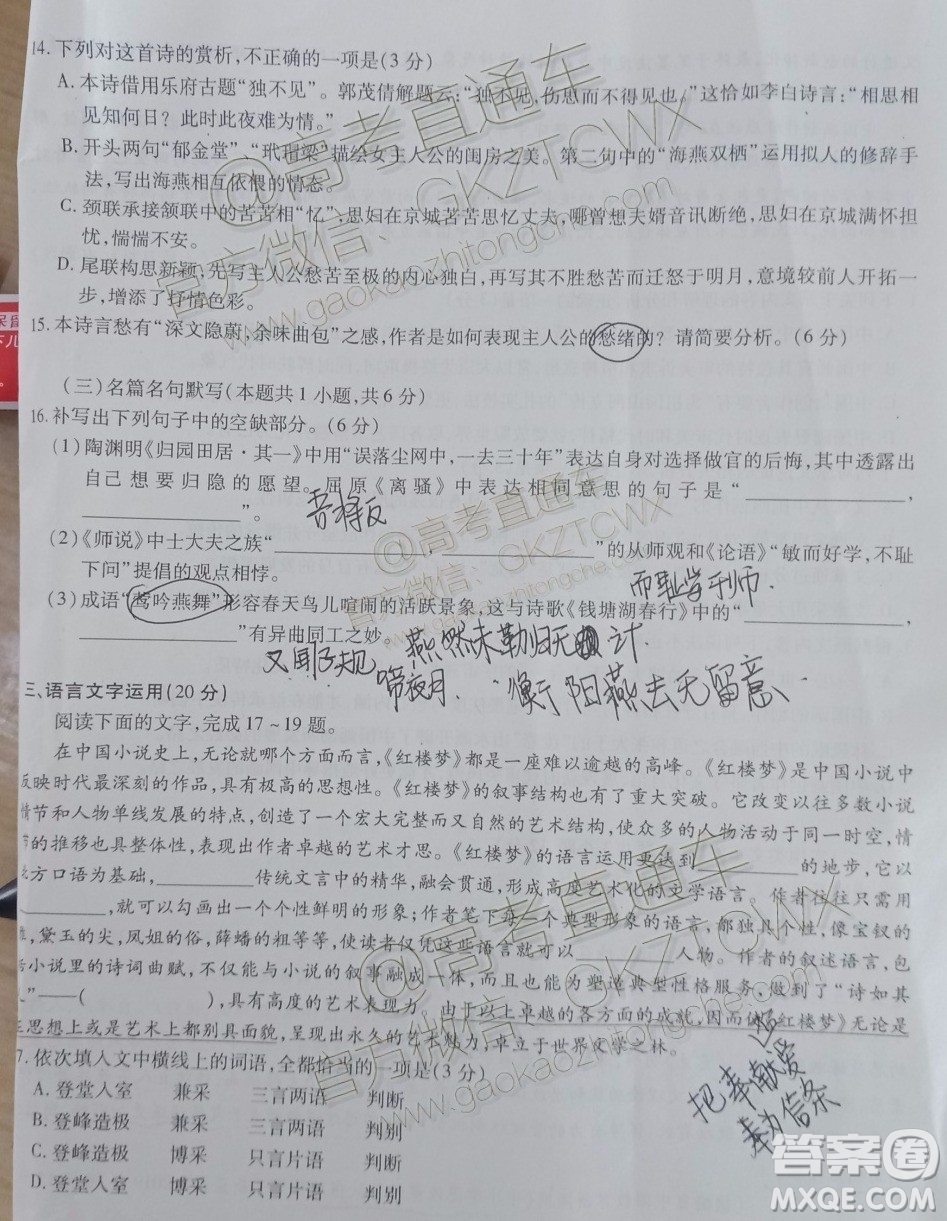 14.下列对这首诗的赏析,不正确的一项是(3分)
A.本诗借用乐府古题“独不见”。郭茂倩解题云:“独不见,伤思而不得见也。”这恰如李白诗言:“相思相
见知何日?此时此夜难为情。”
B.开头两句“郁金堂”“玳瑁梁”描绘女主人公的闺房之美。第二句中的“海燕双栖”运用拟人的修辞手
法,写出海燕相互依偎的情态。
C.颈联承接颔联中的苦苦相“忆”,思妇在京城苦苦思忆丈夫,哪曾想夫婿音讯断绝,思妇在京城满怀担
忧,惴惴不安。
D.尾联构思新颖,先写主人公愁苦至极的内心独白,再写其不胜愁苦而迁怒于明月,意境较前人更进一
步,增添了抒情色彩。
15.本诗言愁有“深文隐蔚,余味曲包”之感,作者是如何表现主人公的愁绪的?请简要分析。(6分)
(三)名篇名句默写(本题共1小题,共6分)
16.补写出下列句子中的空缺部分。(6分)
(1)陶渊明《归园田居·其一》中用“误落尘网中,一去三十年”表达自身对选择做官的后悔,其中透露出
自己想要归隐的愿望。屈原《离骚》中表达相同意思的句子是“____,
____”。 吾将反
(2)《师说》中士大夫之族“____,____”的从师观和《论语》“敏而好学,不耻
下问”提倡的观点相悖。 而耻学于师.
(3)成语“莺吟燕舞”形容春天鸟儿喧闹的活跃景象,这与诗歌《钱塘湖春行》中的“____,
____”有异曲同工之妙。 燕然未勒归无计
又闻子规
啼夜月. 衡阳燕去无留意.
三、语言文字运用(20分)
阅读下面的文字,完成17~19题。
在中国小说史上,无论就哪个方面而言,《红楼梦》都是一座难以逾越的高峰。《红楼梦》是中国小说中
反映时代最深刻的作品,具有极高的思想性。《红楼梦》的叙事结构也有了重大突破。它改变以往多数小说
情节和人物单线发展的特点,创造了一个宏大完整而又自然的艺术结构,使众多的人物活动于同一时空,情
节的推移也具整体性,表现出作者卓越的艺术才思。《红楼梦》的语言运用更达到____的地步,它以
北方口语为基础,____传统文言中的精华,融会贯通,形成高度艺术化的文学语言。作者往往只需用
____,就可以勾画出一个个性鲜明的形象;作者笔下每一个典型形象的语言,都独具个性,像宝钗的
,黛玉的尖,凤姐的俏,薛蟠的粗等等,使读者仅凭这些语言就可以____人物。作者的叙述语言
小说里的诗词曲赋,不仅能与小说的叙事融成一体,而且也能为塑造典型性格服务,做到了“诗如其
人”——( ),具有高度的艺术表现力。由于以上卓越的各方面的成就,因而使《红楼梦》无论是
在思想上或是艺术上都别具面貌,呈现出永久的艺术魅力,卓立于世界文学之林。
17.依次填入文中横线上的词语,全都恰当的一项是(3分)
A.登堂入室 兼采 三言两语 判断
B.登峰造极 兼采 三言两语 判别
C.登峰造极 博采 只言片语 判断
D.登堂入室 博采 只言片语 判别
把奉献爱
奉为信条
@高考直通车
官方微信:GKZTCWX
www.gaokaozhitongche.com
@高考直通车
官方微信:GKZTCWX
www.gaokaozhitongche.com
@高考直通车
官方微信:GKZTCWX
www.gaokaozhitongche.com
答案圈
MXQE.COM